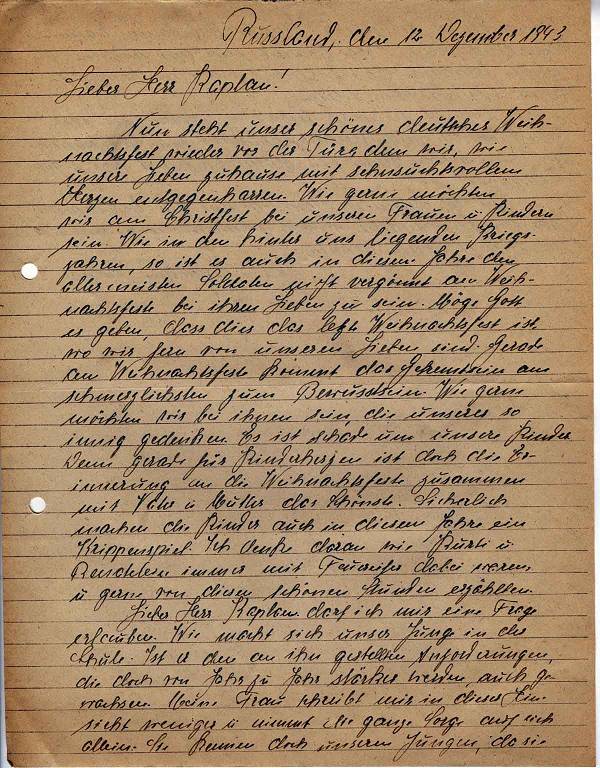 Russland, den 12. Dezember 1943
Lieber Herr Kaplan!
Nun steht unser schönes deutsches Weih-
nachtsfest wieder vor der Türe dem wir, wie
unsere Lieben zuhause mit sehnsuchtsvollem
Herzen entgegenharren. Wie gerne möchten
wir am Christfest bei unseren Frauen u Kindern
sein. Wie in den hinter uns liegenden Kriegs-
jahren, so ist es auch in diesem Jahre den
allermeisten Soldaten nicht vergönnt am Weih-
nachtsfeste bei ihren Lieben zu sein. Möge Gott
es geben, dass dies das letzte Weihnachtsfest ist,
wo wir fern von unseren Lieben sind. Gerade
am Weihnachtsfeste kommt das Getrenntsein am
schmerzlichsten zum Bewusstsein. Wie gerne
möchten wir bei ihnen sein, die unserer so
innig gedenken. Es ist schade um unsere Kinder
Denn gerade für Kinderherzen ist doch die Er-
innerung an die Weihnachtsfeste zusammen
mit Vater u Mutter das Schönste. Sicherlich
machen die Kinder auch in diesem Jahre ein
Krippenspiel. Ich denke daran wie Kurti u
immer mit Feuereifer dabei waren
u gerne von diesen schönen Stunden erzählten.
Lieber Herr Kaplan darf ich mir eine Frage
erlauben. Wie macht sich unser Junge in der
Schule. Ist er den an ihn gestellten Anforderungen,
die doch von Jahr zu Jahr stärker werden, auch ge-
wachsen. Meine Frau schreibt mir in dieser Hin-
sicht weniger u nimmt die ganze Sorge auf sich
allein. Sie kennen doch unseren Jungen, da sie